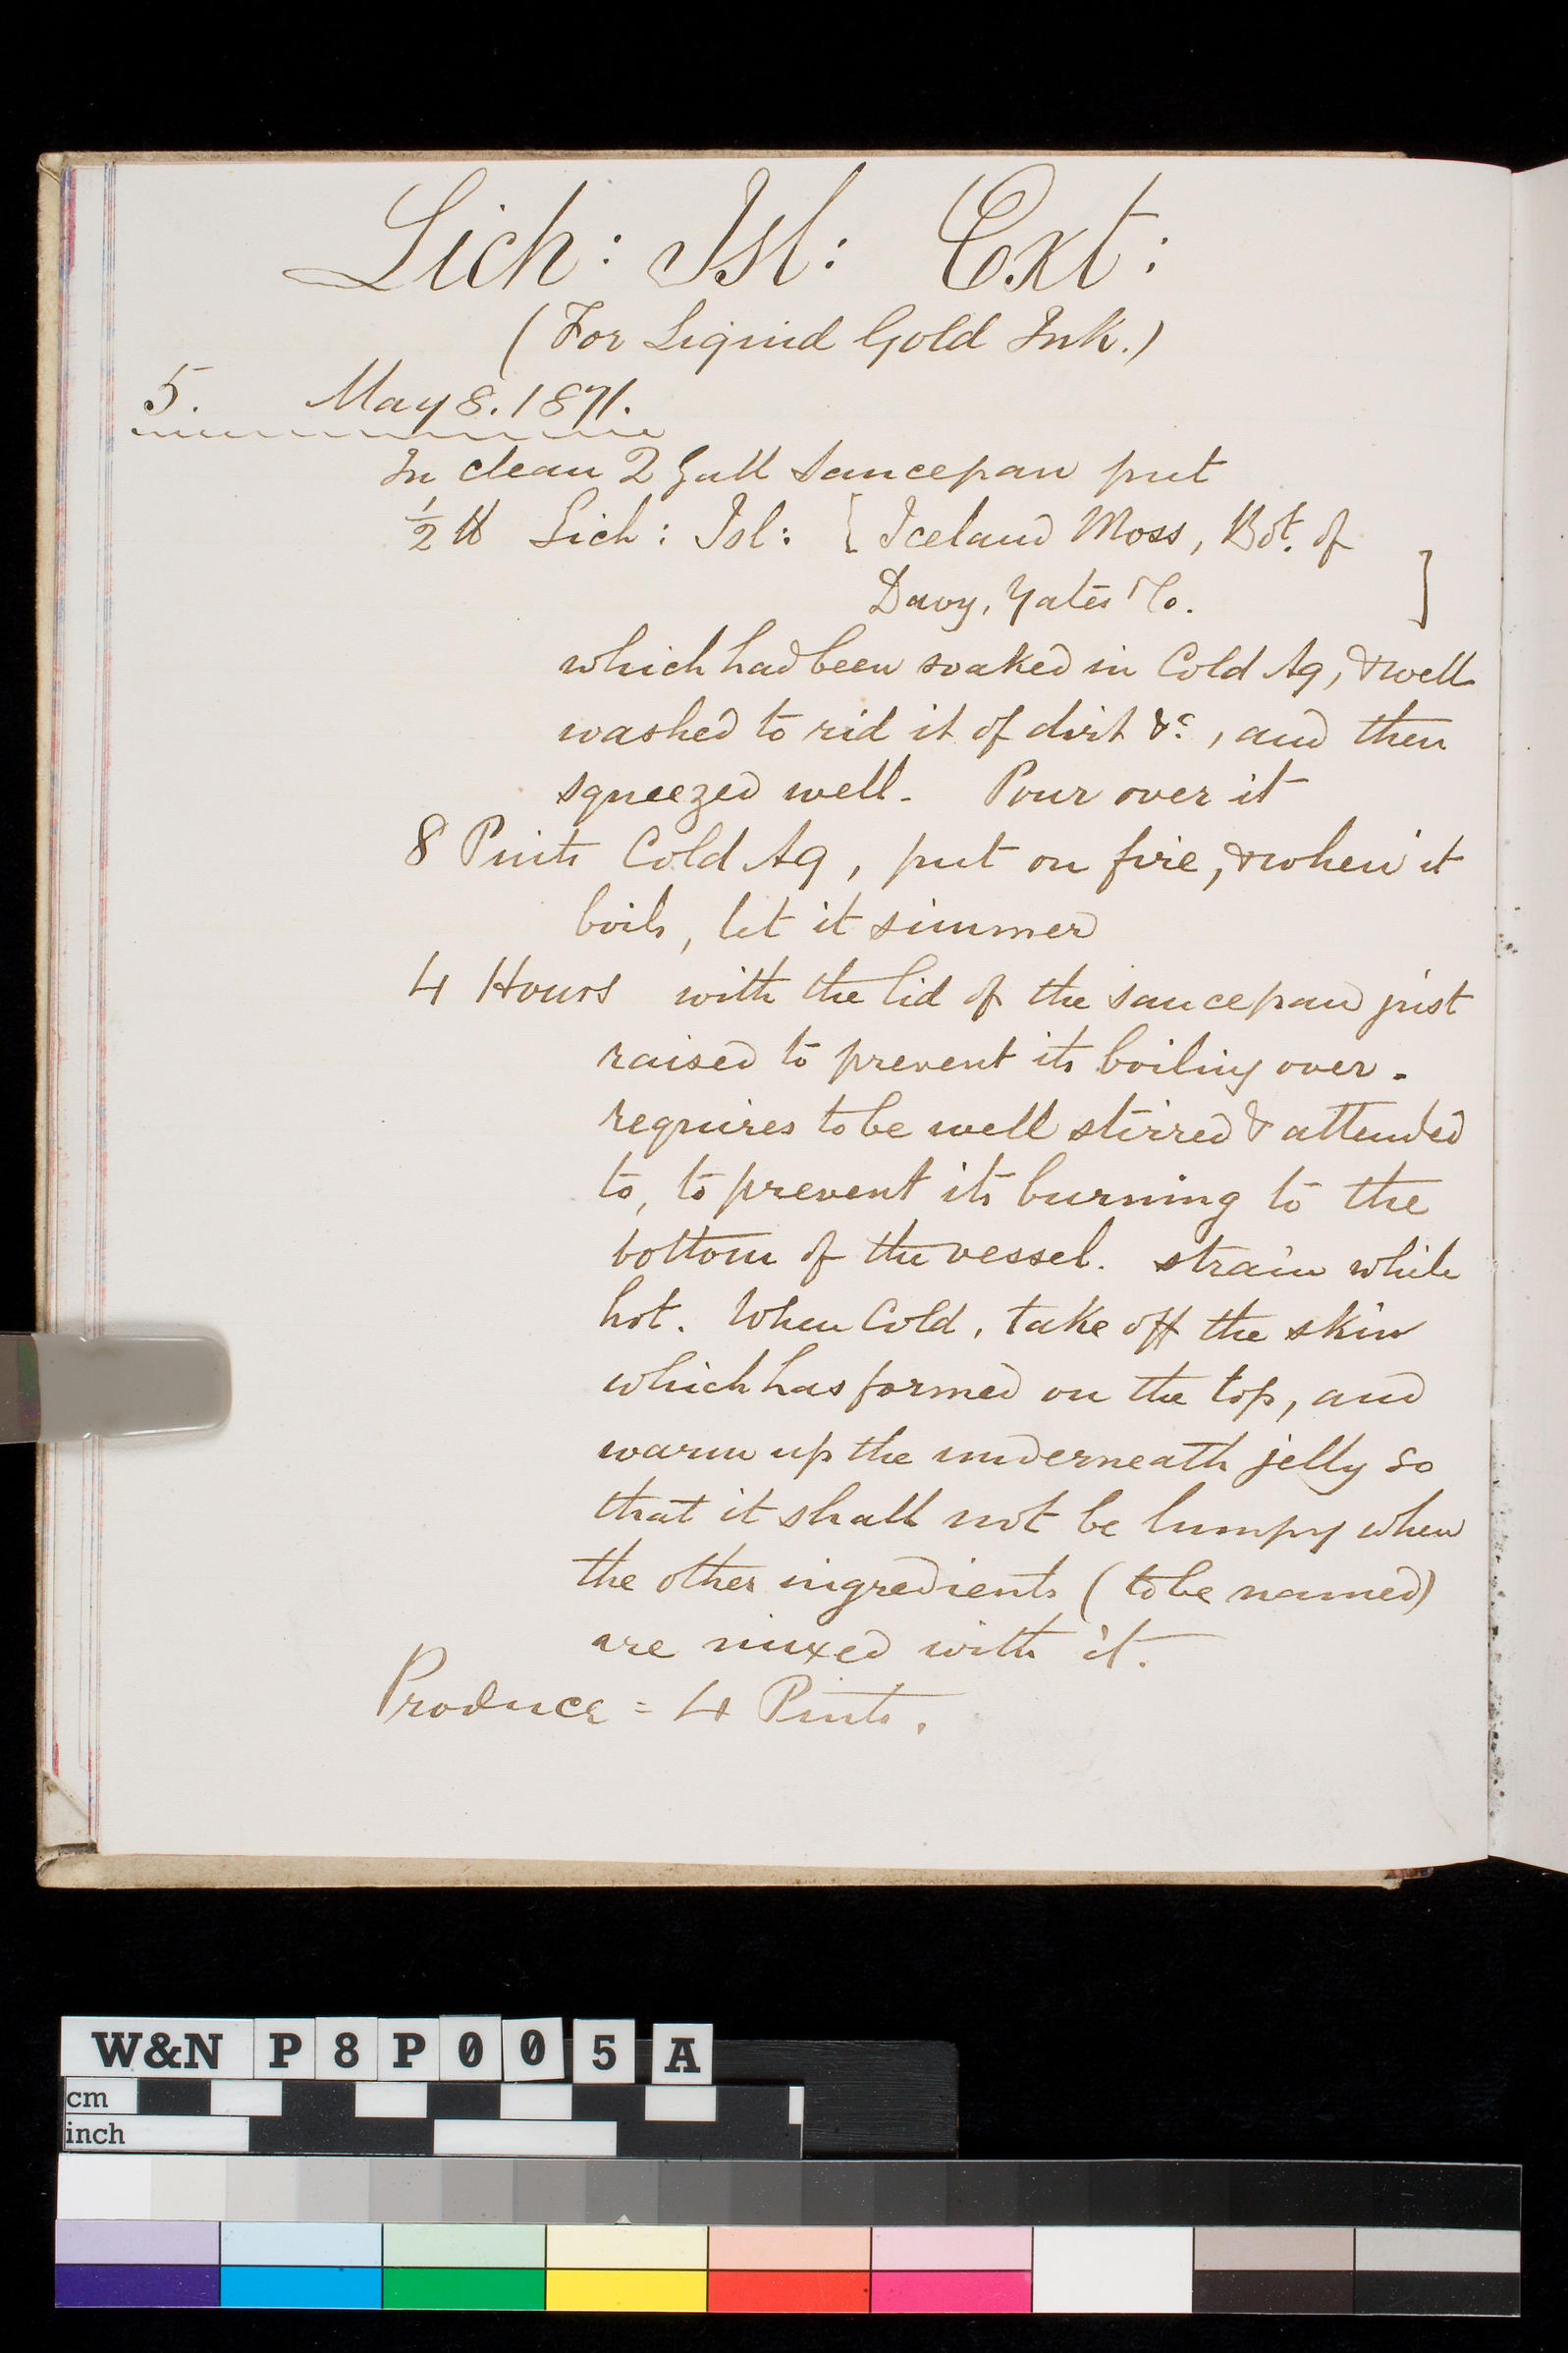 Lich: Isl: Ext:
(For Liquid Gold Ink.)
5. May 8. 1871.
In clean 2 Gall Saucepan put
½ ℔ Lich: Isl: [Iceland Moss, Bot. of
Davy, Yates & Co.]
which had been soaked in Cold Aq, & well
washed to rid it of dirt &c, and then
squeezed well. Pour over it
8 Pints Cold Aq, put on fire, & when it
boils, let it simmer
4 Hours with the lid of the saucepan just
raised to prevent its boiling over.
requires to be well stirred & attended
to, to prevent its burning to the
bottom of the vessel. strain while
hot. When Cold, take off the skin
which has formed on the top, and
warm up the underneath jelly so
that it shall not be lumpy when
the other ingredients (to be named)
are mixed with it.
Produce = 4 Pints.
W&N P8P005A
cm
inch